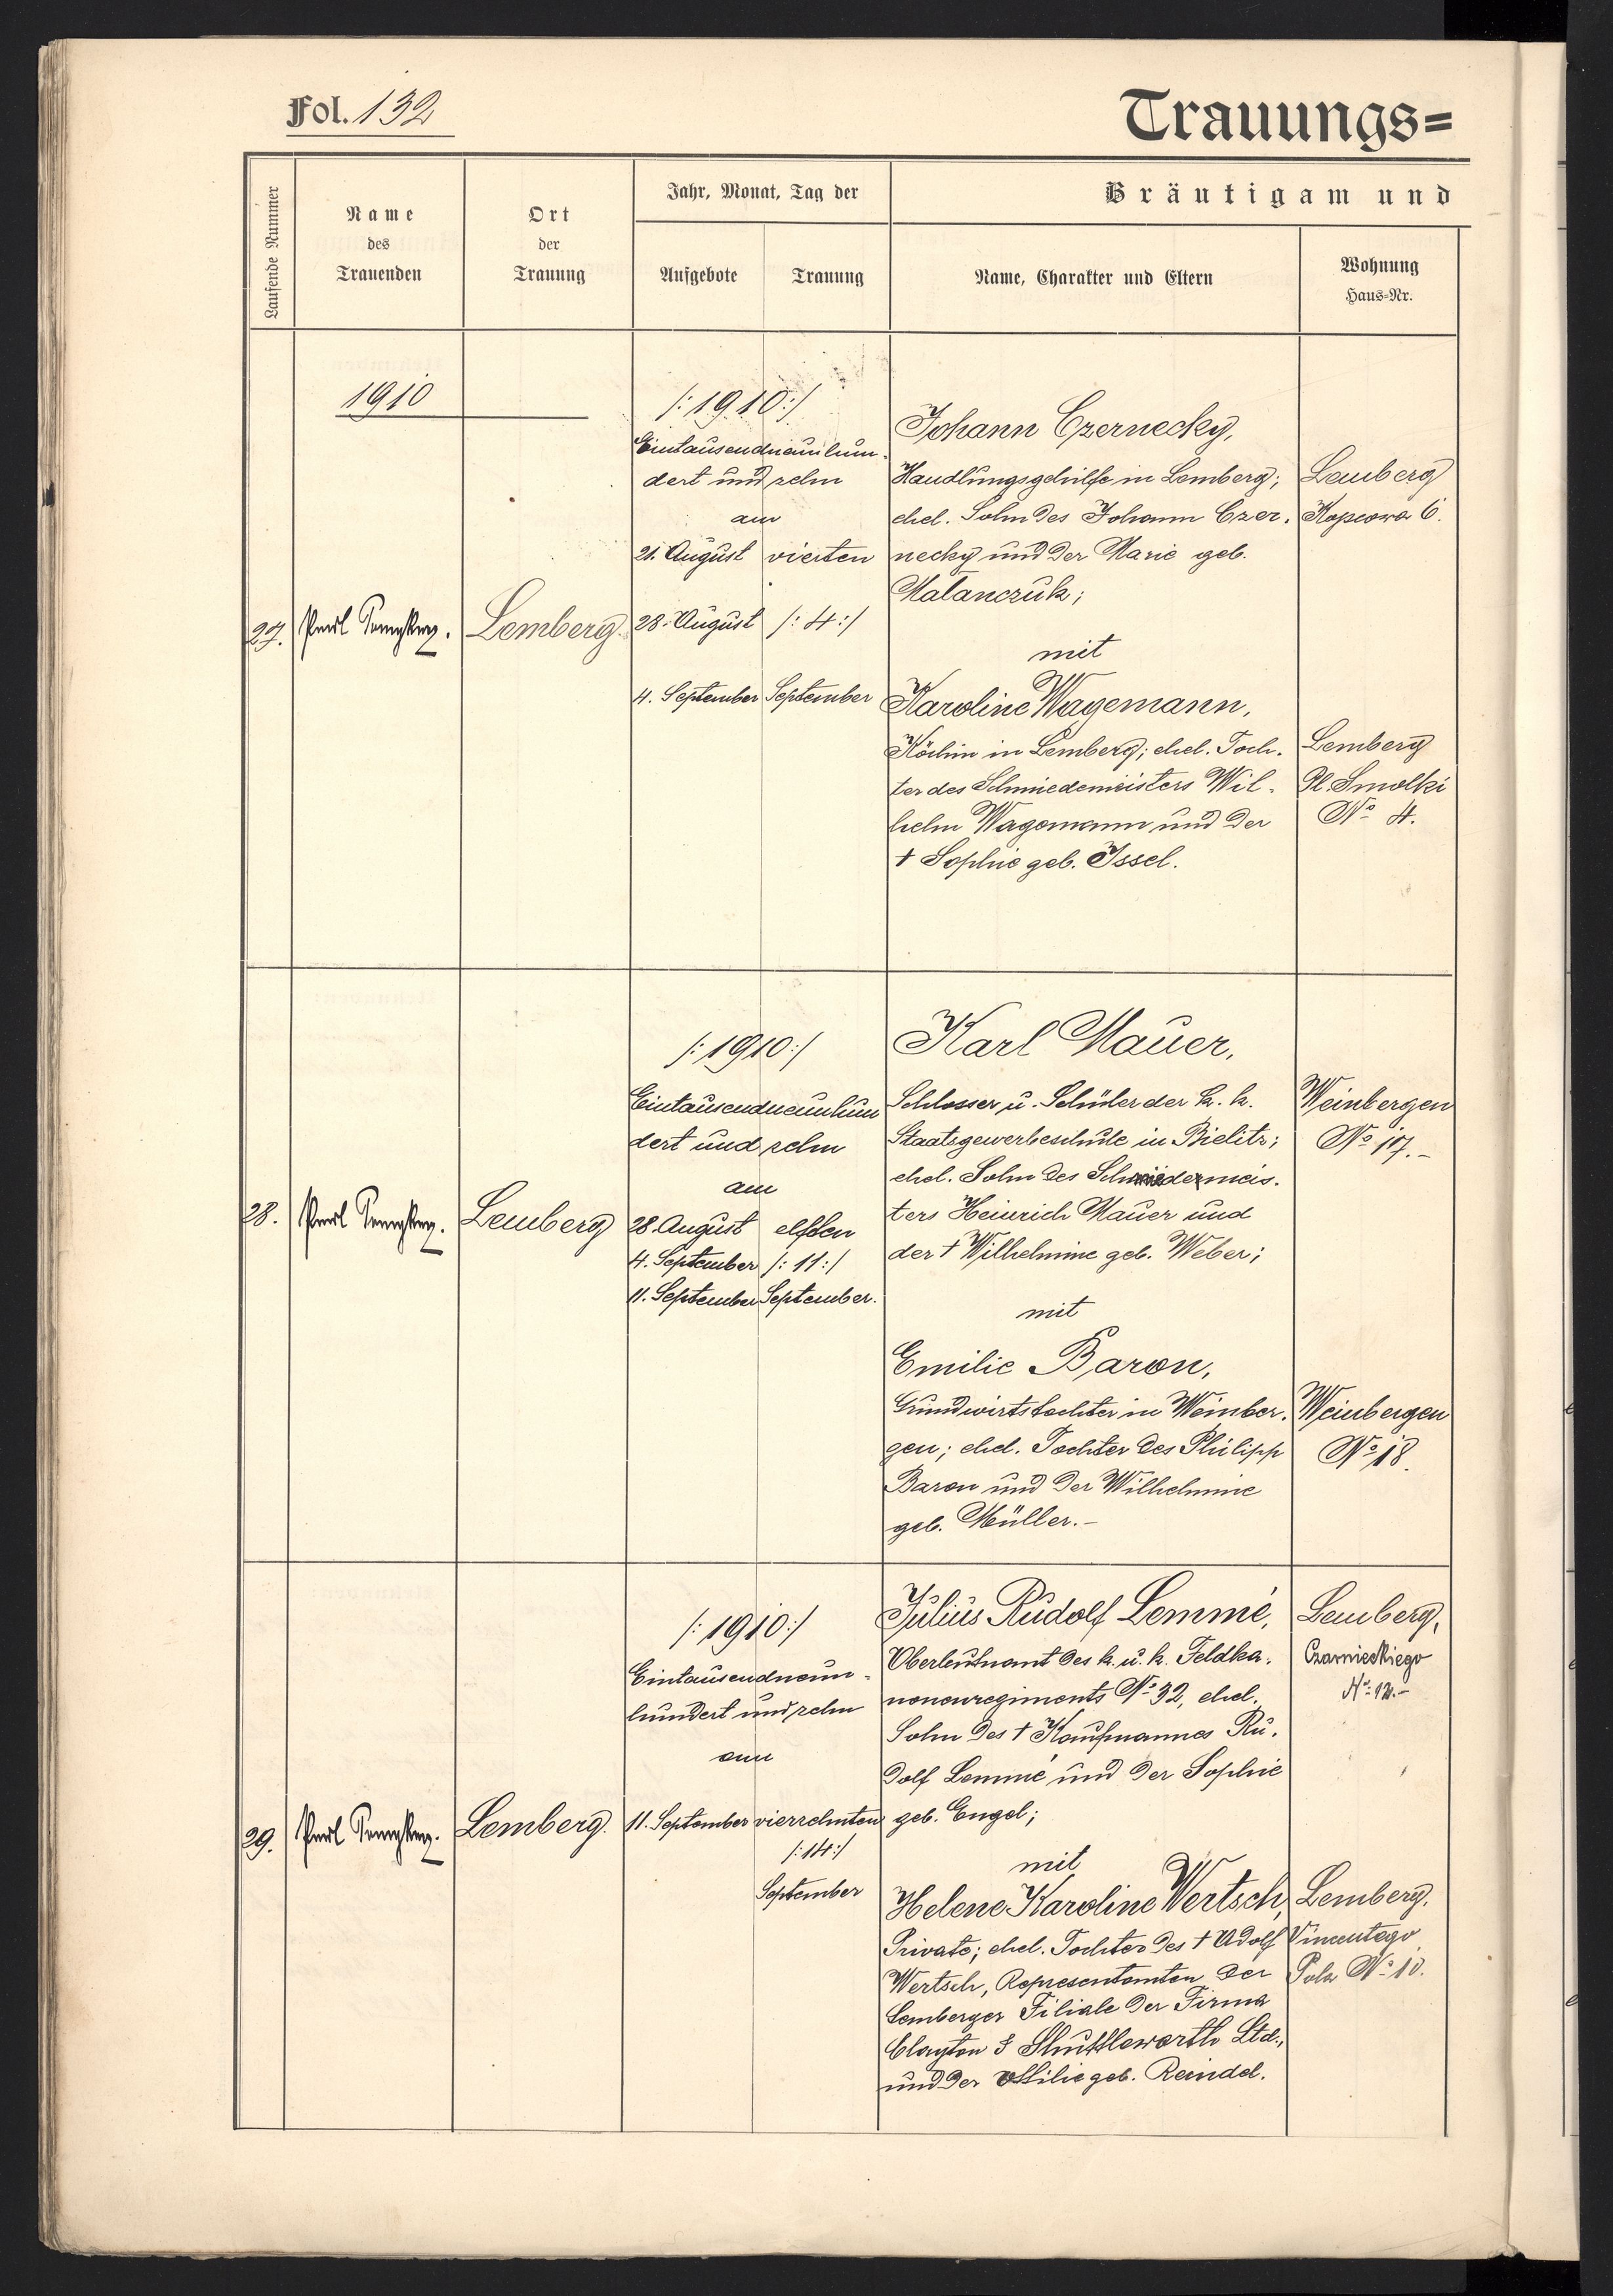 Fol. 132
Trauungs=
Laufende Nummer
Name
des
Trauenden
Ort
der
Trauung
Jahr, Monat, Tag der
Aufgebote
Trauung
Bräutigam und
Name, Charakter und Eltern
Wohnung
Haus-Nr.
1910
27.
Lemberg
/: 1910 :/
Eintausendneunhun-
dert und zehn
am
21. August vierten
28. August /: 4 :/
4. September September
Johann Czernecky,
Handlungsgehilfe in Lemberg;
ehel. Sohn des Johann Czer-
necky und der Marie geb.
Malanczuk;
mit
Karoline Wagemann,
Köchin in Lemberg; ehel. Toch-
ter des Schmiedemeisters Wil-
helm Wagemann und der
† Sophie geb. Issel.
Lemberg
Kopcowa 6.
Lemberg
Pl. Smolki
No 4.
28.
Lemberg
/: 1910 :/
Eintausendneunhun
dert und zehn
am
28. August elften
4. September /: 11 :/
11. September September.
Karl Mauer,
Schlosser u. Schüler der k. k.
Staatsgewerbeschule in Bielitz;
ehel. Sohn des Schmiedemeis-
ters Heinrich Mauer und
der † Wilhelmine geb. Weber;
mit
Emilie Baron,
Grundwirtstochter in Weinber-
gen; ehel. Tochter des Philipp
Baron und der Wilhelmine
geb. Müller.-
Weinbergen
No 17.-
Weinbergen
No 18.
29.
Lemberg.
/: 1910 :/
Eintausendneun-
hundert und zehn
am
11. September vierzehnten
/: 14 :/
September
Julius Rudolf Lemmé,
Oberleutnant des k. u. k. Feldka-
nonenregiments No 32, ehel.
Sohn des † Kaufmannes Ru-
dolf Lemmé und der Sophie
geb. Engel;
mit
Helene Karoline Wertsch,
Private; ehel. Tochter des † Adolf
Wertsch, Representanten der
Lemberger Filiale der Firma
Clayton & Shuttleworth Ltd.,
und der Ottilie geb. Reindel.
Lemberg,
Czarnieckiego
No 12.-
Lemberg.
Vincentego
Pola No 10.